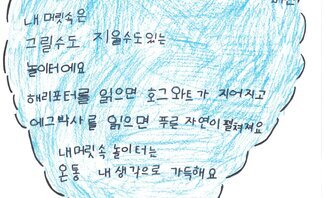 내 머릿속은
그릴수도 지울수도 있는
놀이터예요
해리포터를 읽으면 호그와트가 지어지고
에그박사를 읽으면 푸른 자연이 펼쳐져요
내 머릿속 놀이터는
온통 내 생각으로 가득해요